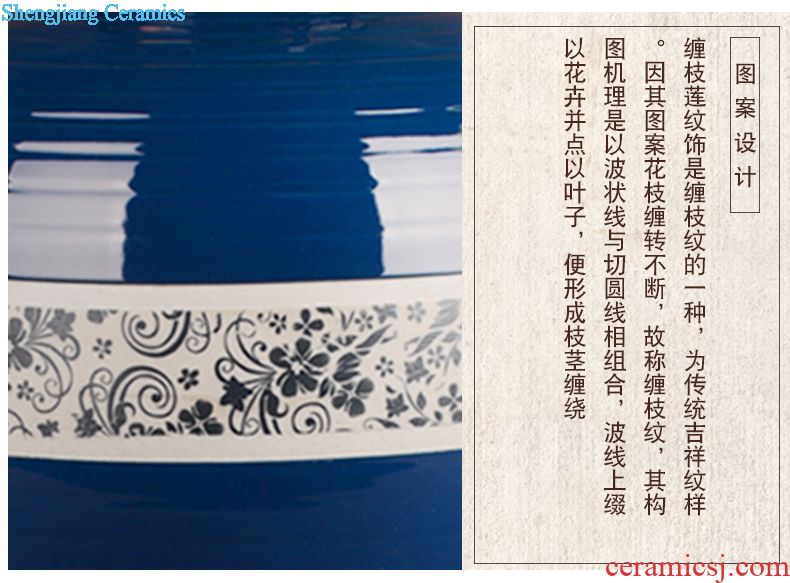 Shengjiang Ceramics
图案设计
缠枝莲纹饰是缠枝纹的一种，为传统吉祥纹样
。因其图案花枝缠转不断，故称缠枝纹，其构
图机理是以波状线与切圆线相组合，波线上缀
以花卉并点以叶子，便形成枝茎缠绕
ceramicsj.com